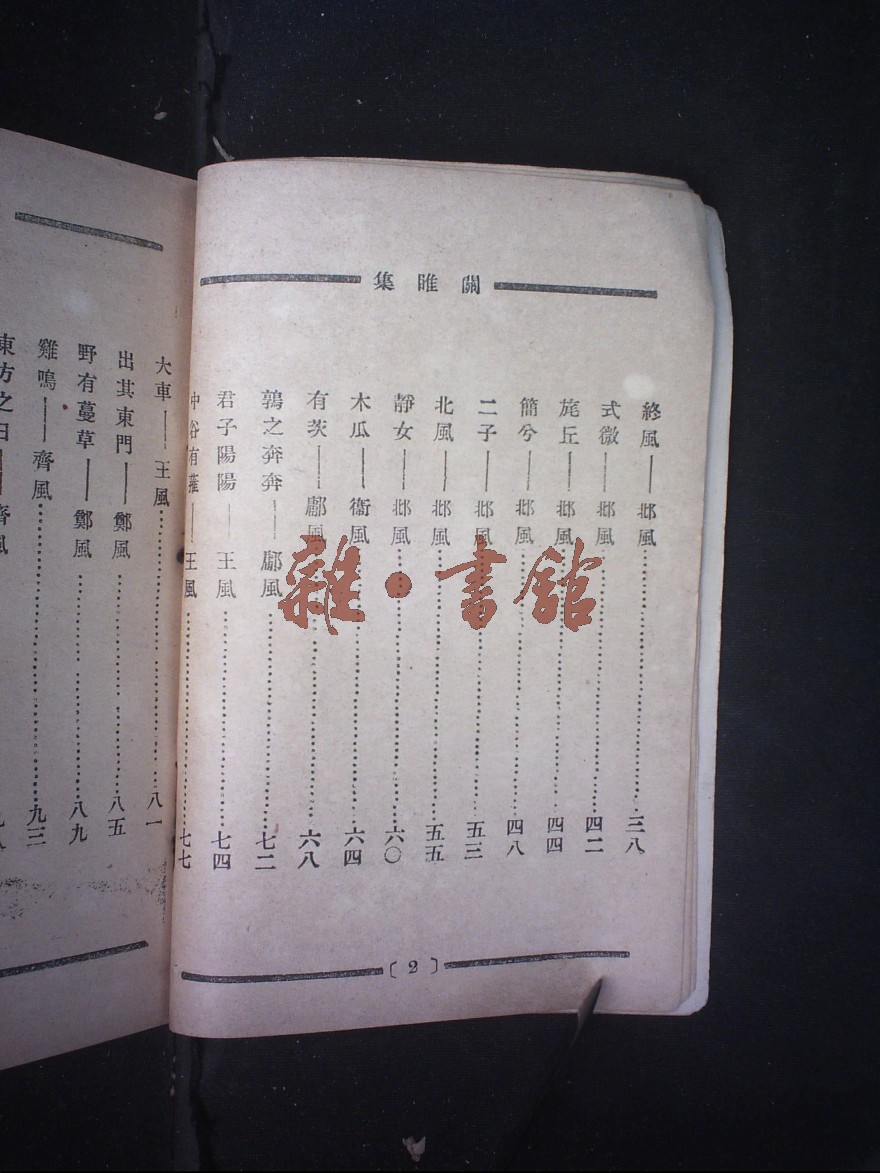 關雎集
終風——邶風……三八
式微——邶風……四二
旄丘——邶風……四四
簡兮——邶風……四八
二子——邶風……五三
北風——邶風……五五
靜女——邶風……六〇
木瓜——衞風……六四
有茨——鄘風……六八
鶉之奔奔——鄘風……七二
君子陽陽——王風……七四
中谷有蓷——王風……七七
〔2〕
大車——王風……八一
出其東門——鄭風……八五
野有蔓草——鄭風……八九
雞鳴——齊風……九三
東方之日——齊風
雜·書館